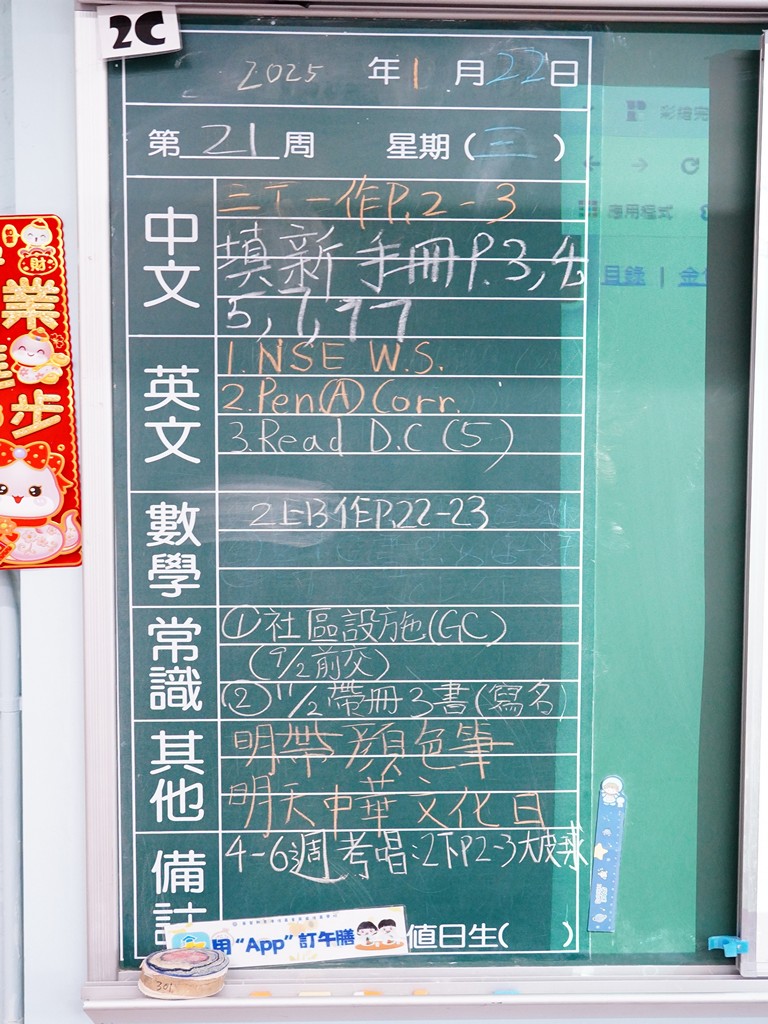 2C
2025 年 1 月 22 日
第 21 周 星期 ( 三 )
中文
三丁一作P.2-3
填新手冊P.3,4,
5,7,77
英文
1. NSE W.S.
2. Pen(A) Corr.
3. Read D.C (5)
數學
2上B作P.22-23
常識
① 社區設施(GC)
(9/2前交)
② 11/2 帶冊3書(寫名)
其他
明帶顏色筆
明天中華文化日
備註
4-6週考唱:2下P2-3大皮球
用 “App” 訂午膳
值日生( )
財
業
步
應用程式
目錄 |
301